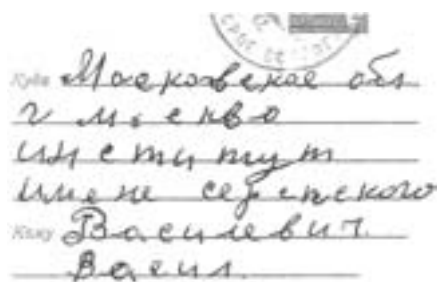 Куда Московское обл
г москво
институт
имене сербского
Кому Василевич.
Васил.